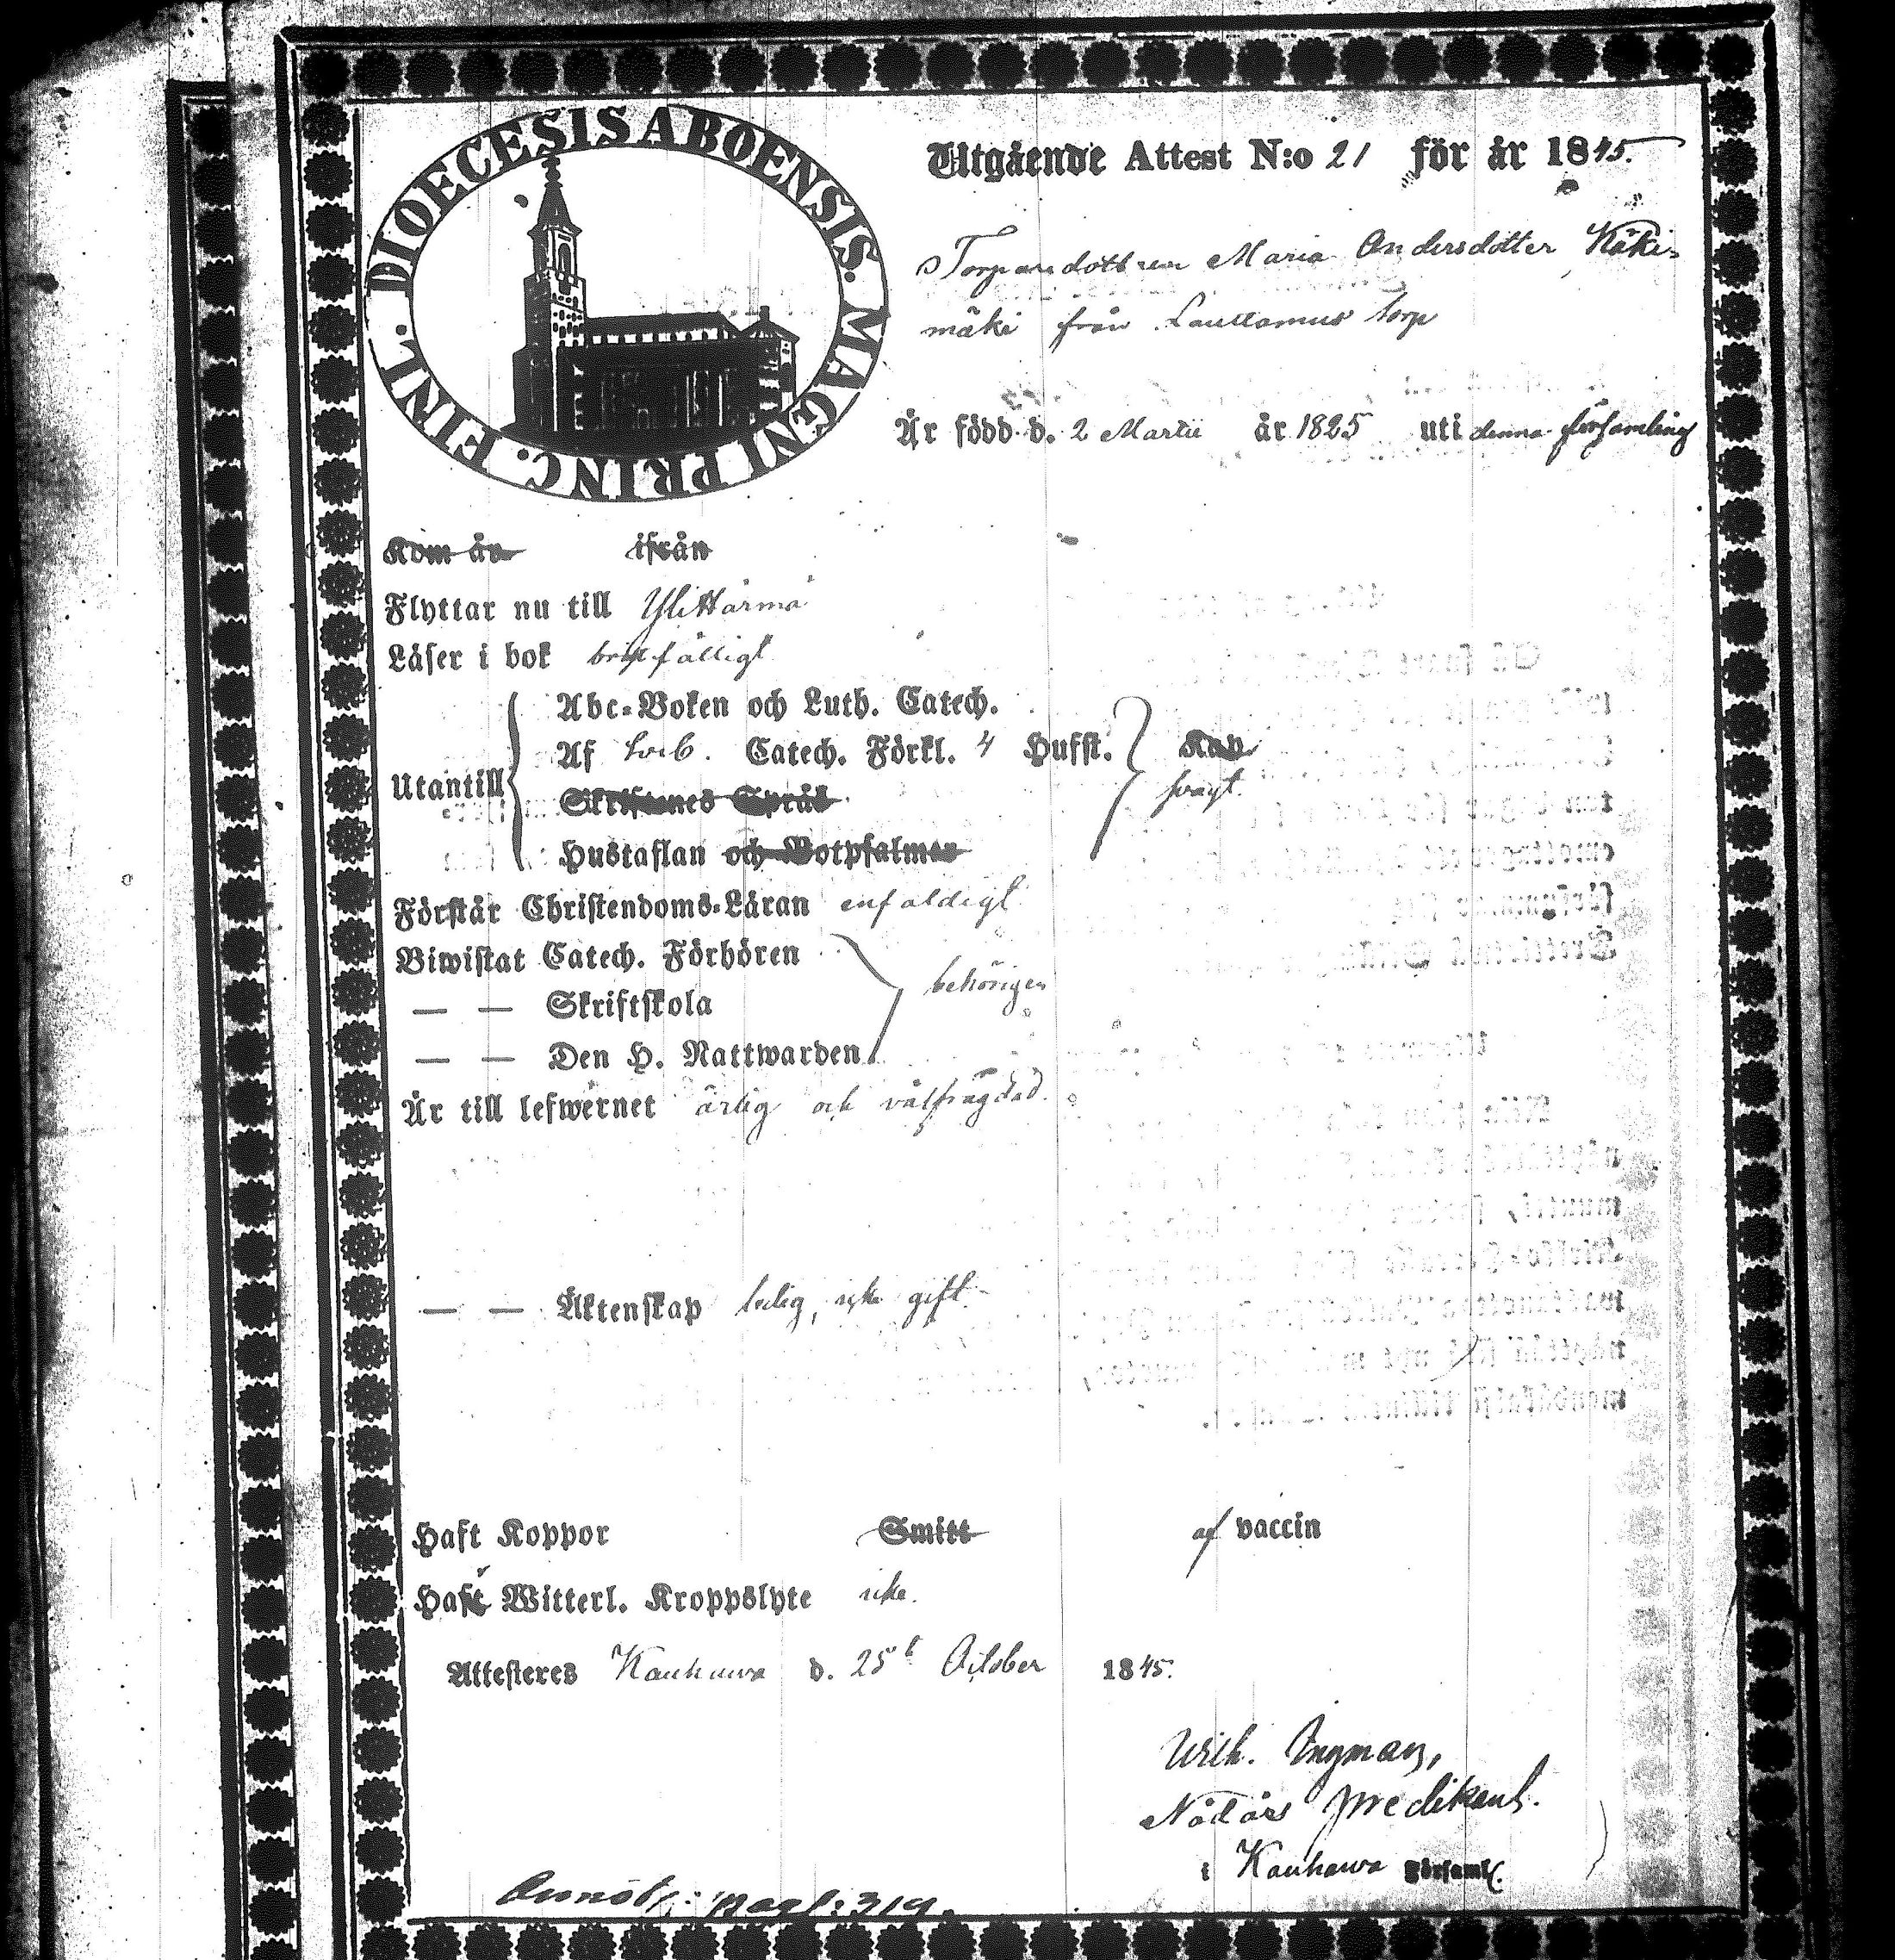 DIOECESIS ABOENSIS. MAGNI PRINC. FINL.
Utgående Attest N:o 21 för år 1845.
Torparedottren Maria Andersdotter Käki-
mäki från Lauttamus torp
Är född d. 2 Martii år 1825 uti denna församling
Kom år ifrån
Flyttar nu till Ylihärmä
Läser i bok bristfälligt
Utantill
Abc-Boken och Luth. Catech.
Af Catech. Förkl. 4 Hufst.
Skriftenes Språk
Hustaflan och Botpsalmer
svagt.
Förstår Christendoms-Läran enfaldigt
Biwistat Catech. Förhören
— — Skriftskola
— — Den H. Nattwarden
behörigen
Är till lefwernet ärlig och välfrägdad.
— — Äktenskap ledig, icke gift.
Haft Koppor Smitt af vaccin
Haft Witterl. Kroppslyte icke.
Attesteres Kauhawa d. 25 October 1845.
Wilh. Ingman,
Nådårs predikant.
i Kauhawa Församl.
Annot. pag: 319.